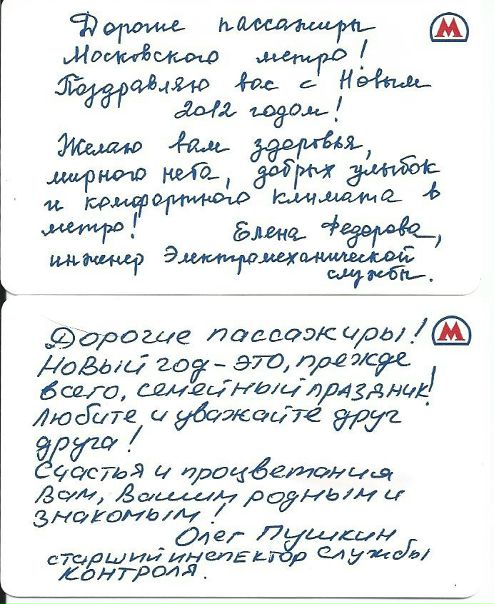 Дорогие пассажиры
Московского метро!
Поздравляю вас с Новым
2012 годом!
Желаю вам здоровья,
мирного неба, добрых улыбок
и комфортного климата в
метро!
Елена Федорова,
инженер Электромеханической
службы.
М
Дорогие пассажиры!
Новый год - это, прежде
всего, семейный праздник!
Любите и уважайте друг
друга!
Счастья и процветания
Вам, Вашим родным и
знакомым!
Олег Пушкин
старший инспектор службы
контроля.
М